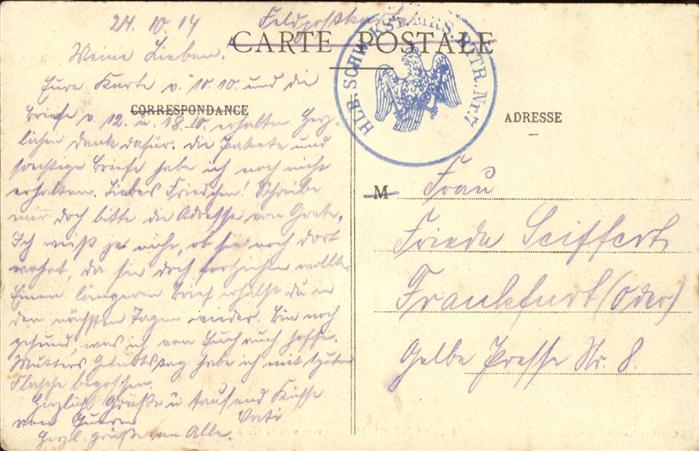 24.10.14
Feldpostkarte
CARTE POSTALE
HLB. SCHW. KST. MRS. BTTR. Nr. 7
CORRESPONDANCE
ADRESSE
Meine Lieben.
Eure Karte v. 10.10. und die
Briefe v. 12. u. 18.10. erhalten. Herz-
lichen Dank dafür. Die Pakete und
sonstige Briefe habe ich noch nicht
erhalten. Liebes Friedchen! Schreibe
mir doch bitte die Adresse von Grete.
Ich weiß gar nicht, ob sie noch dort
wohnt, da sie doch fortziehen wollte.
Einen längeren Brief erhältst du in
den nächsten Tagen wieder. Bin noch
gesund, was ich von Euch auch hoffe.
Mutters Geburtstag habe ich mit guter
Flasche begossen.
Herzliche Grüße u. tausend Küsse
von Eurem Vati
Herzl. Grüße an Alle.
M
Frau
Frieda Seiffert
Frankfurt (Oder)
Gelbe Presse Nr. 8.